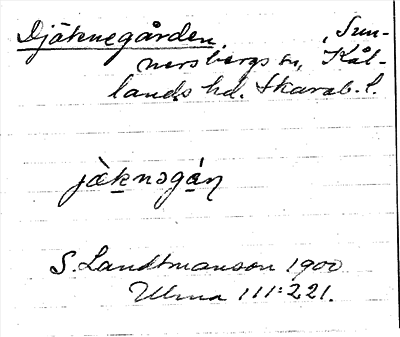 Djäknegården, Sun-
nersbergs sn, Kål-
lands hd. Skarab. l.
jàknəgáṇ
S. Landtmanson 1900
Ulma 111:221.